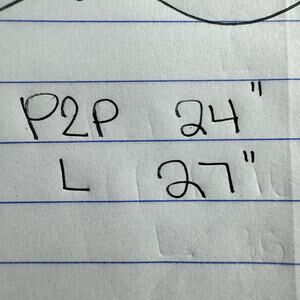 P2P 24"
L 27"